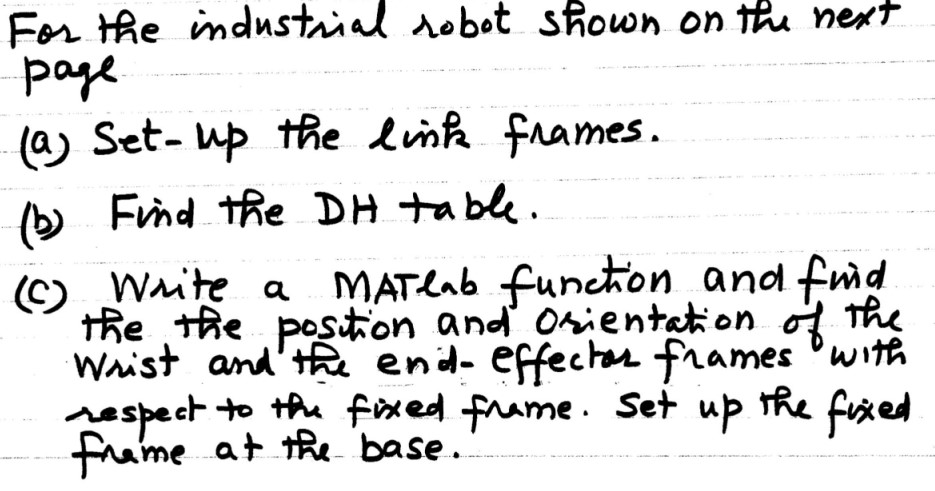 For the industrial robot shown on the next
page
(a) Set-up the link frames.
(b) Find the DH table.
(c) Write a MATlab function and find
the the position and orientation of the
Wrist and the end-effector frames with
respect to the fixed frame. Set up the fixed
frame at the base.